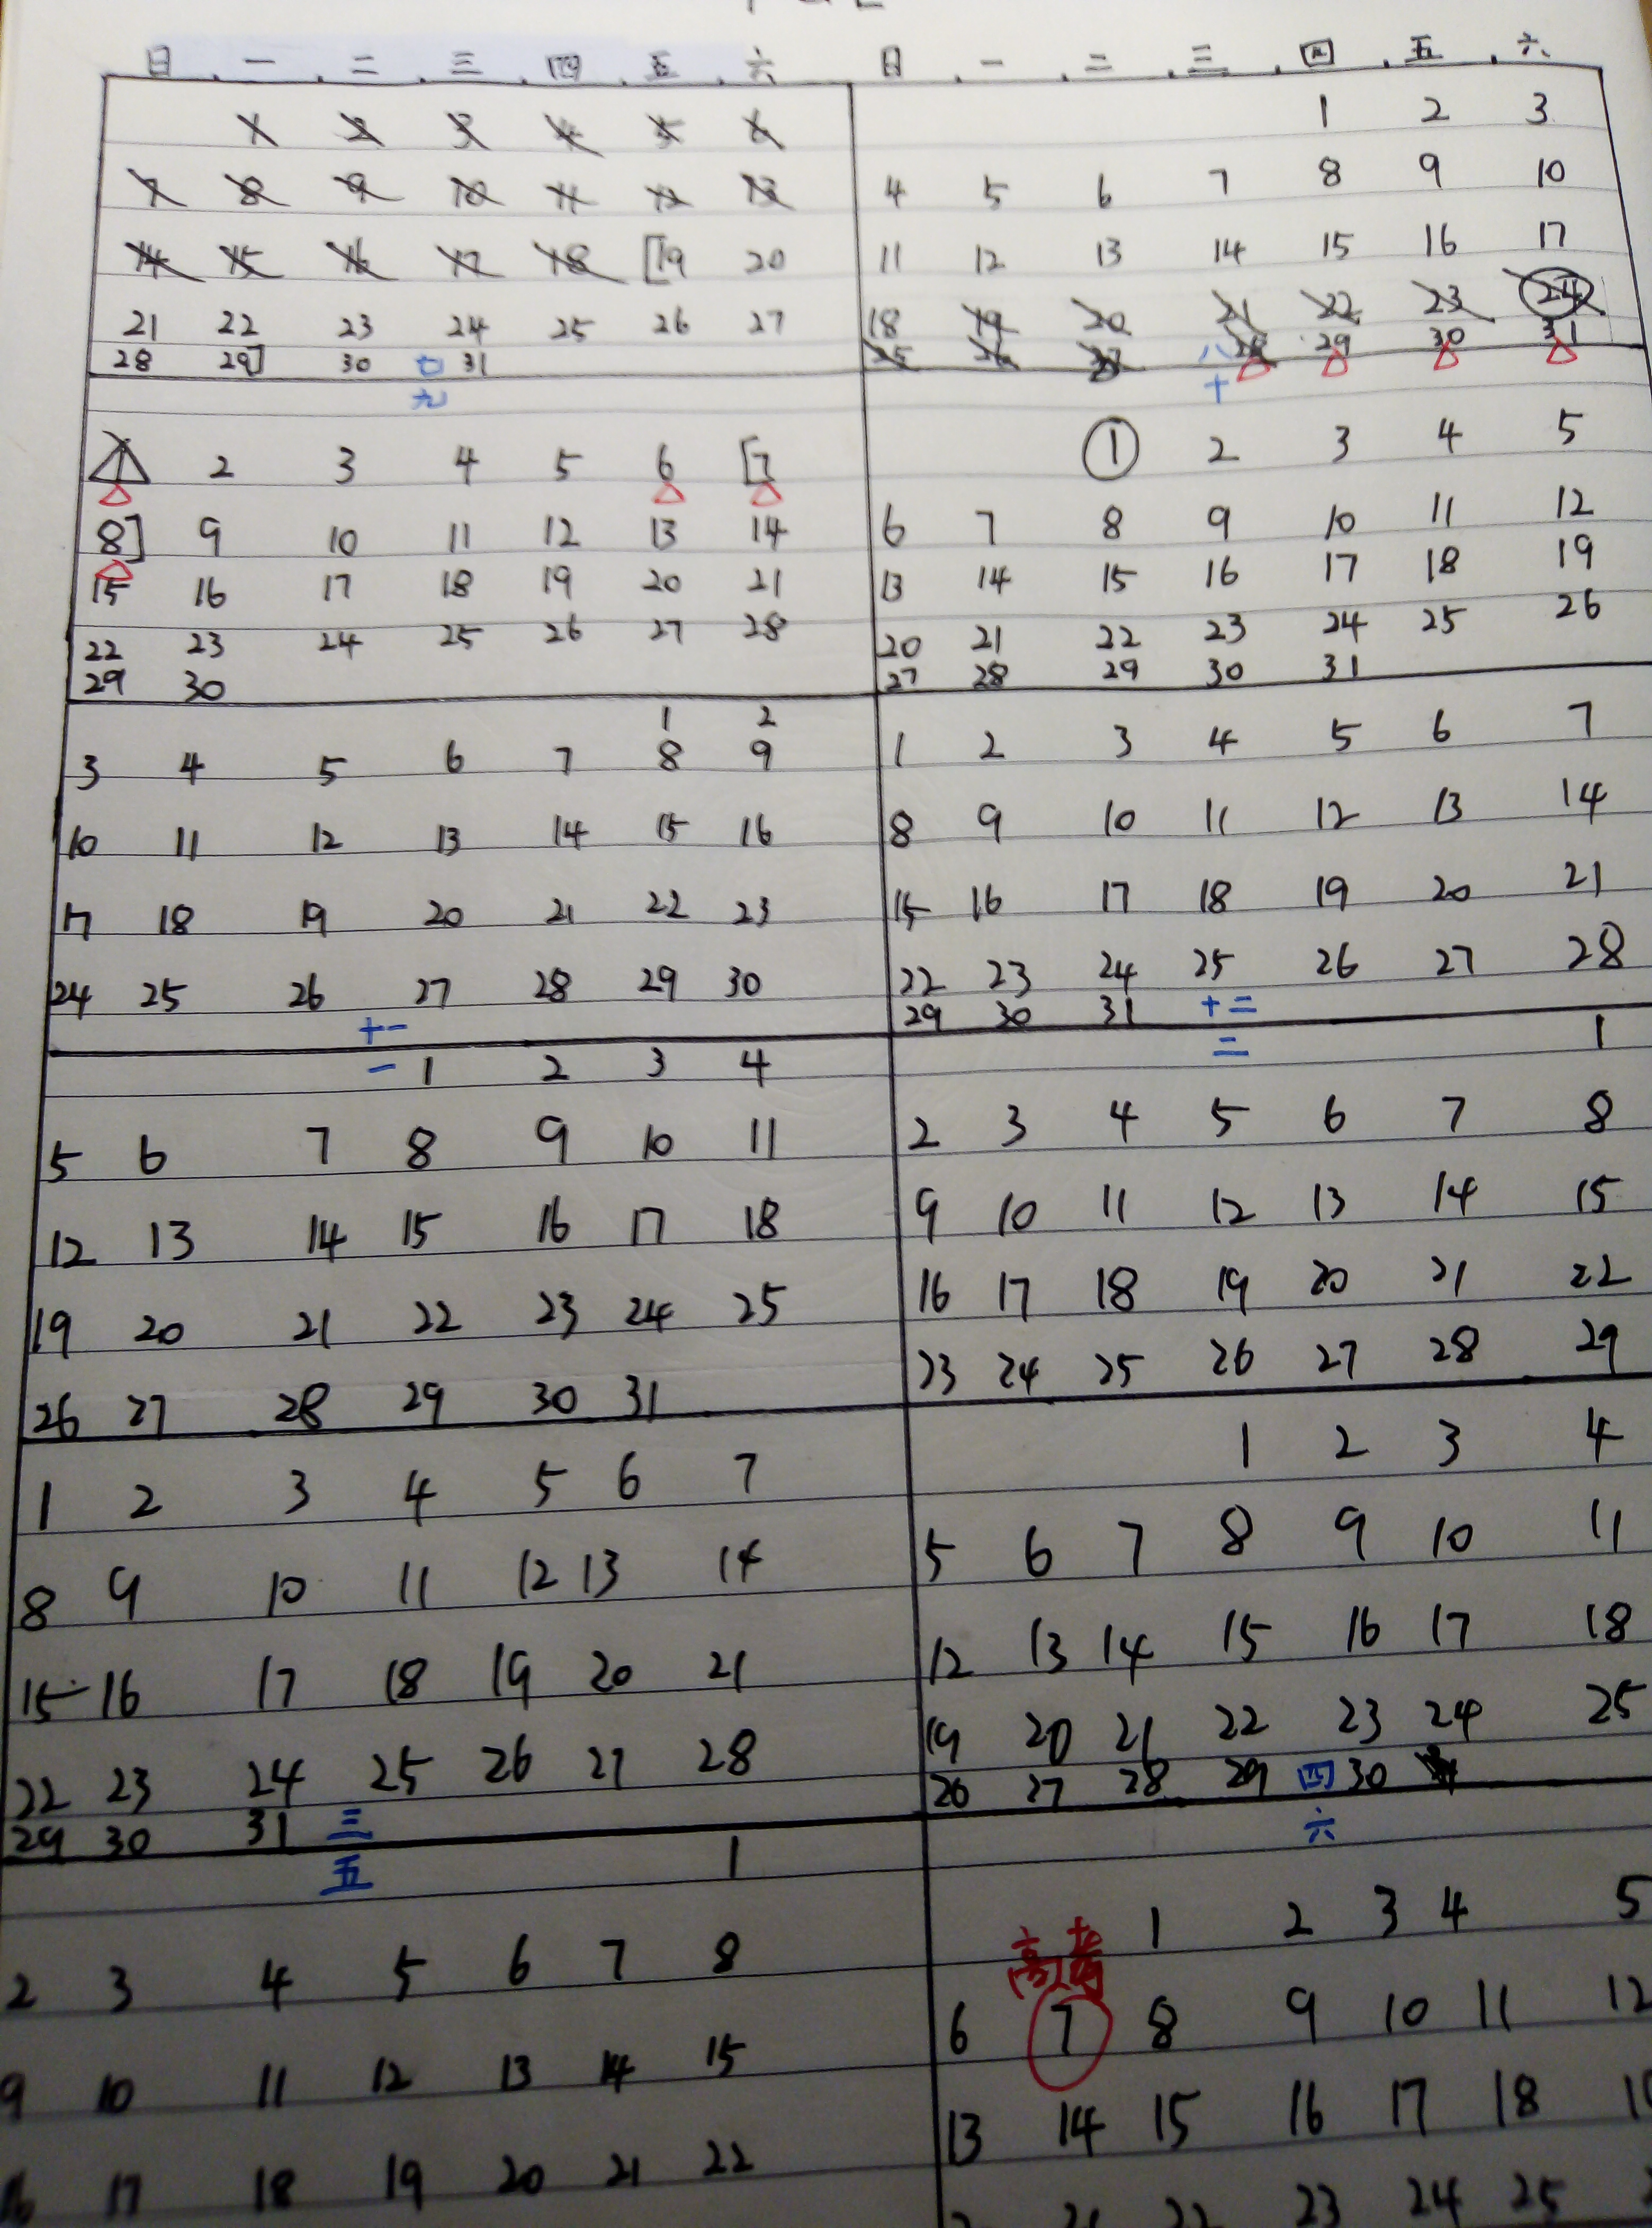 日 一 二 三 四 五 六 日 一 二 三 四 五 六
1 2 3 4 5 6
7 8 9 10 11 12 13
14 15 16 17 18 [19 20
21 22 23 24 25 26 27
28 29] 30 七 31
1 2 3
4 5 6 7 8 9 10
11 12 13 14 15 16 17
18 19 20 21 22 23 24
25 26 27 八 28 29 30 31
九
1 2 3 4 5 6 [7
8] 9 10 11 12 13 14
15 16 17 18 19 20 21
22 23 24 25 26 27 28
29 30
十
1 2 3 4 5
6 7 8 9 10 11 12
13 14 15 16 17 18 19
20 21 22 23 24 25 26
27 28 29 30 31
1 2
3 4 5 6 7 8 9
10 11 12 13 14 15 16
17 18 19 20 21 22 23
24 25 26 27 28 29 30
十一
1 2 3 4 5 6 7
8 9 10 11 12 13 14
15 16 17 18 19 20 21
22 23 24 25 26 27 28
29 30 31 十二
一 1 2 3 4
5 6 7 8 9 10 11
12 13 14 15 16 17 18
19 20 21 22 23 24 25
26 27 28 29 30 31
二 1
2 3 4 5 6 7 8
9 10 11 12 13 14 15
16 17 18 19 20 21 22
23 24 25 26 27 28 29
1 2 3 4 5 6 7
8 9 10 11 12 13 14
15 16 17 18 19 20 21
22 23 24 25 26 27 28
29 30 31 三
1 2 3 4
5 6 7 8 9 10 11
12 13 14 15 16 17 18
19 20 21 22 23 24 25
26 27 28 29 四 30
五 1
2 3 4 5 6 7 8
9 10 11 12 13 14 15
16 17 18 19 20 21 22
六
高考 1 2 3 4 5
6 7 8 9 10 11 12
13 14 15 16 17 18
21 22 23 24 25